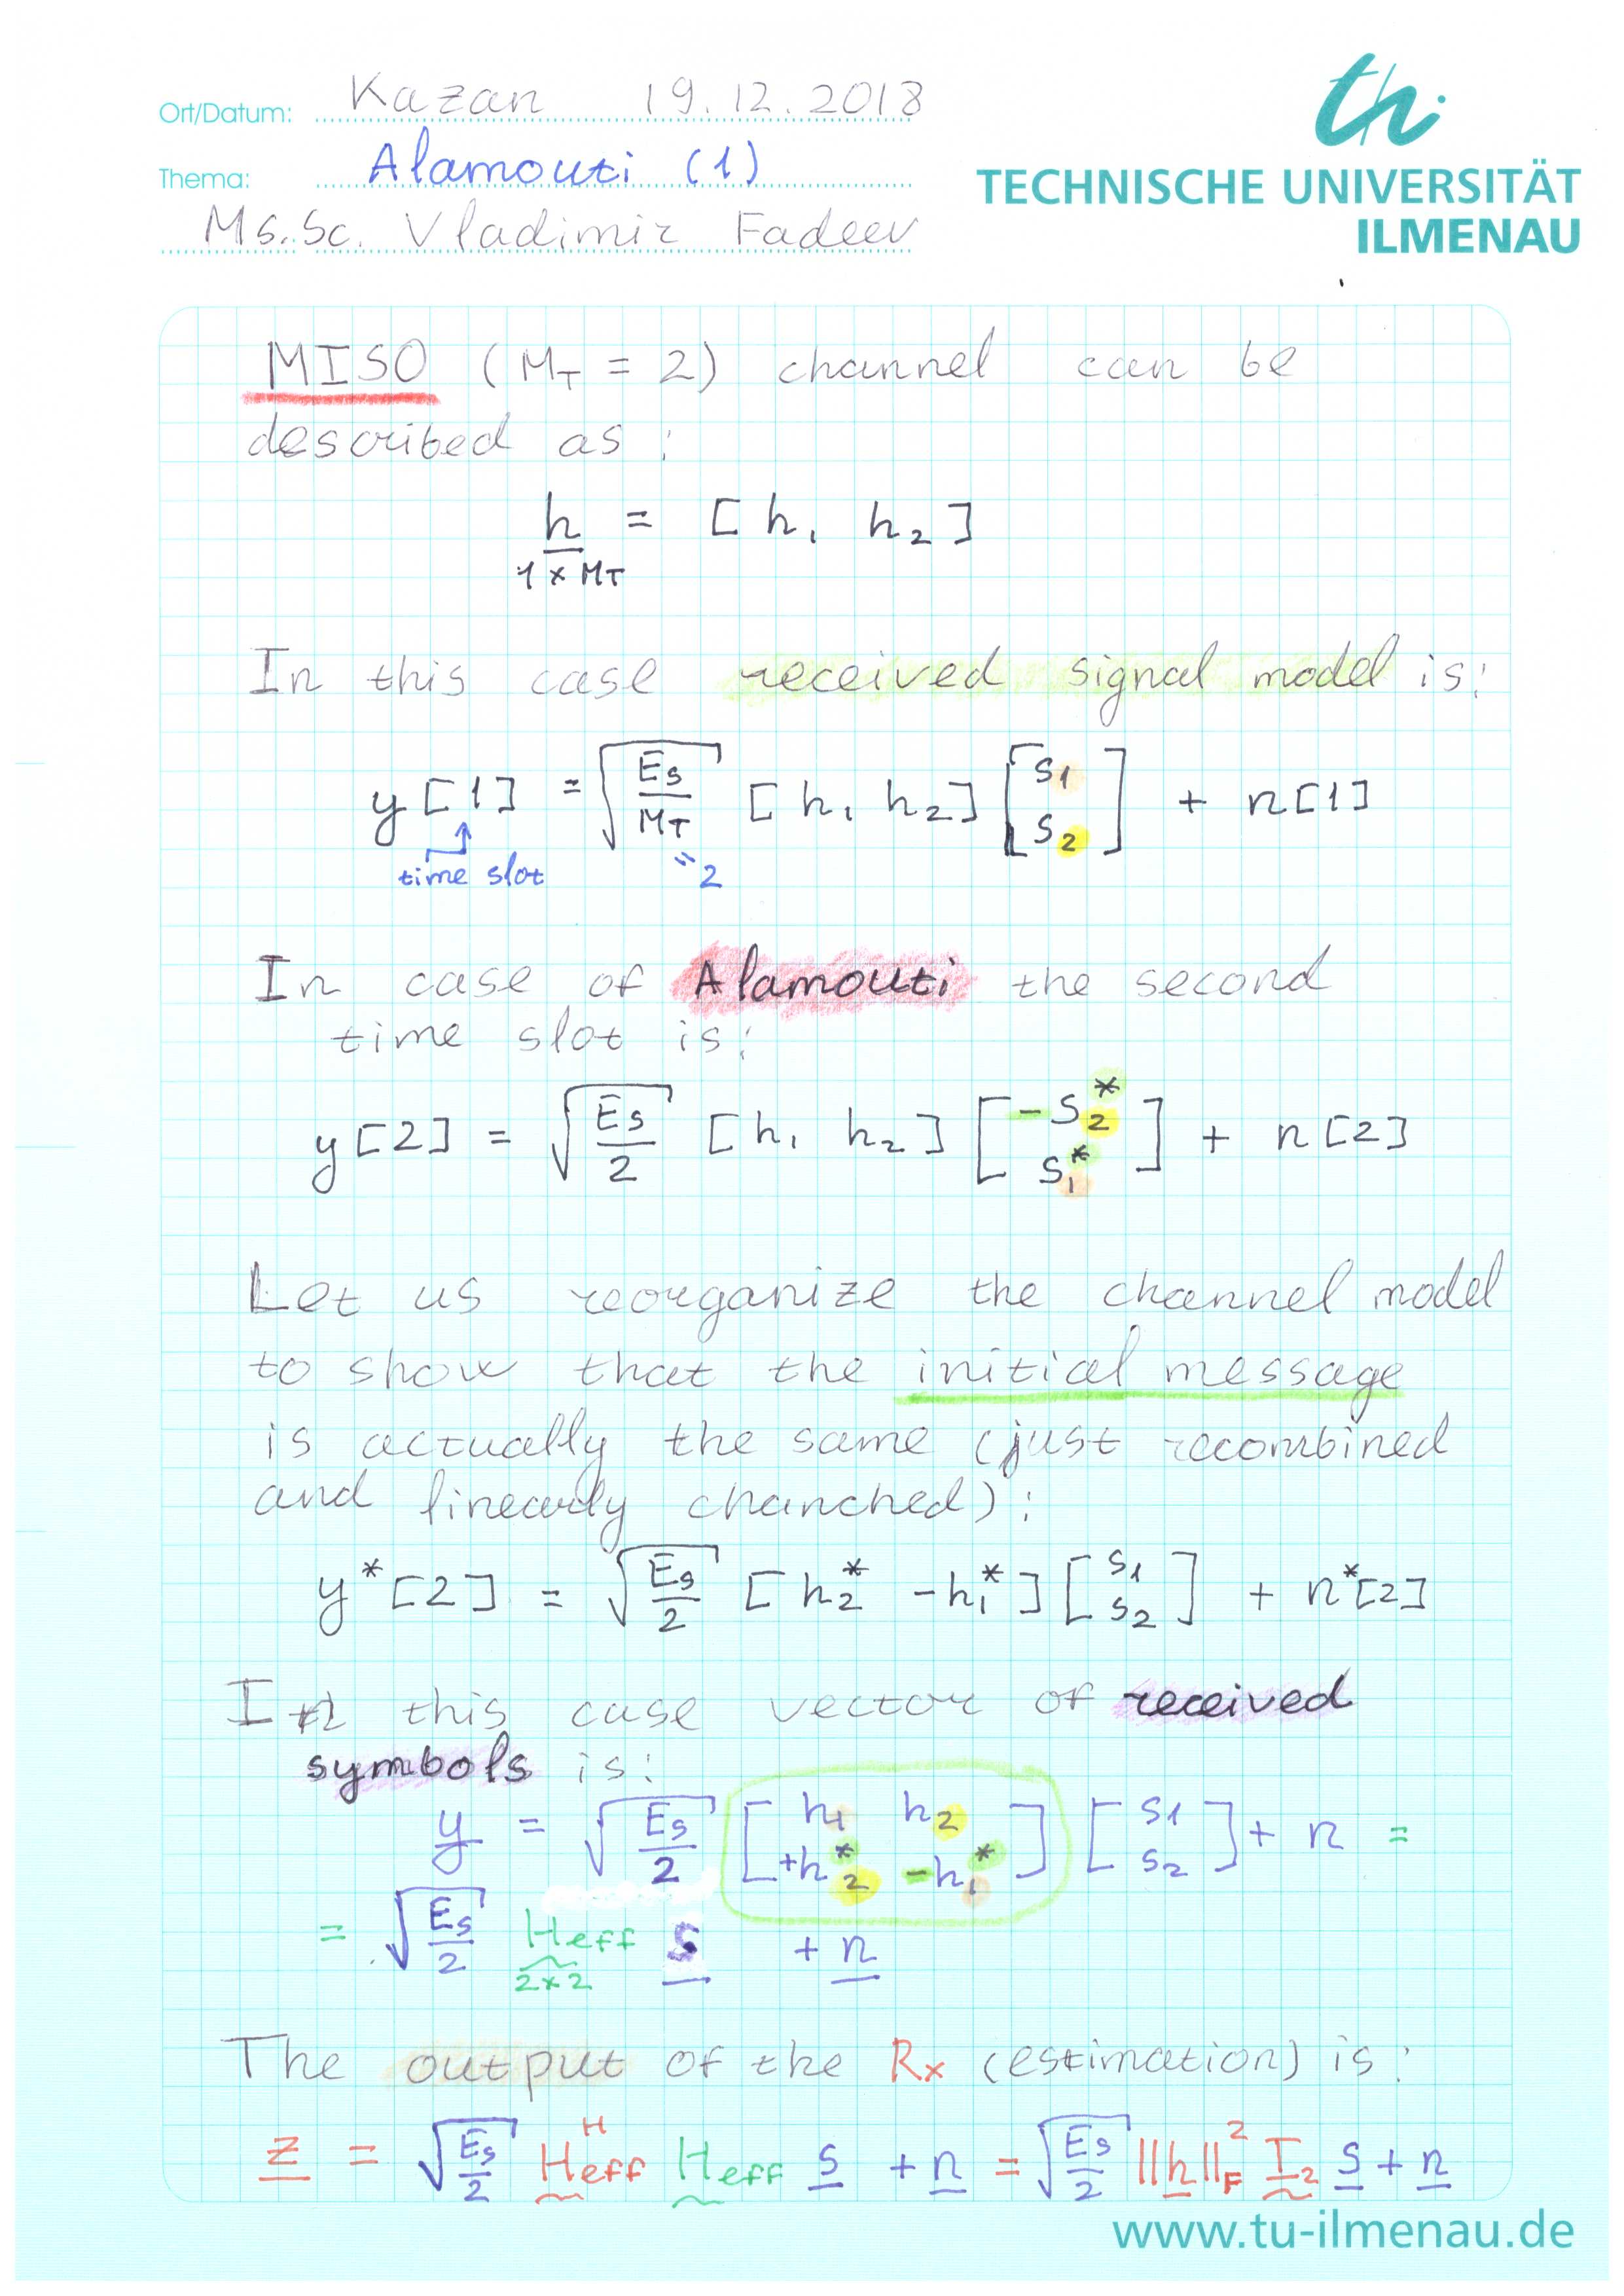 Ort/Datum: Kazan 19.12.2018
Thema: Alamouti (1)
Ms.Sc. Vladimir Fadeev
th
TECHNISCHE UNIVERSITÄT
ILMENAU
MISO (M_T = 2) channel can be
described as:
h = [h₁ h₂]
1 × M_T
In this case received signal model is:
y[1] = √(Es/M_T) [h₁ h₂] [s₁ s₂] + n[1]
time slot
= 2
In case of Alamouti the second
time slot is:
y[2] = √(Es/2) [h₁ h₂] [-s₂* s₁*] + n[2]
Let us reorganize the channel model
to show that the initial message
is actually the same (just recombined
and linearly chanched):
y*[2] = √(Es/2) [h₂* -h₁*] [s₁ s₂] + n*[2]
In this case vector of received
symbols is:
y = √(Es/2) [h₁ h₂ +h₂* -h₁*] [s₁ s₂] + n =
= √(Es/2) Heff s + n
2×2
The output of the Rx (estimation) is:
z = √(Es/2) Heff^H Heff s + n = √(Es/2) ||h||_F² I₂ s + n
www.tu-ilmenau.de